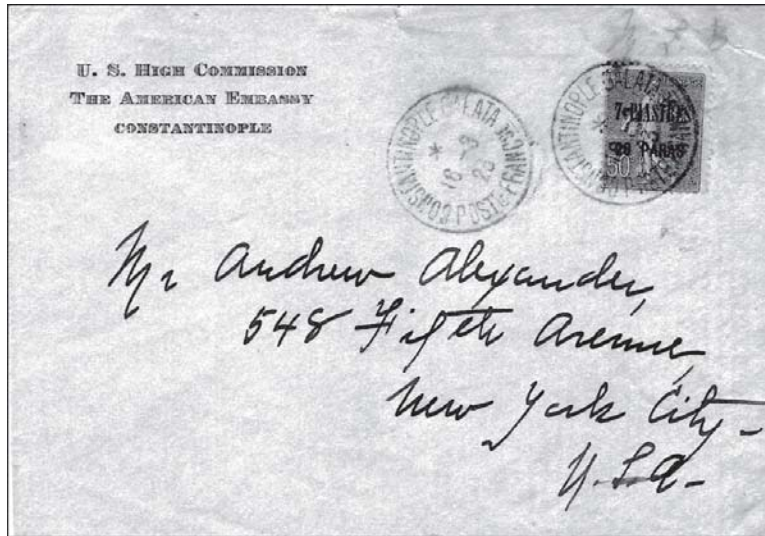 U. S. HIGH COMMISSION
THE AMERICAN EMBASSY
CONSTANTINOPLE
CONSTANTINOPLE GALATA
* 16 -3 23
POSTE FRANCSE
CONSTANTINOPLE GALATA
7 PIASTRES
20 PARAS
50
Mr Andrew Alexander,
548 Fifth Avenue,
New York City-
U.S.A-